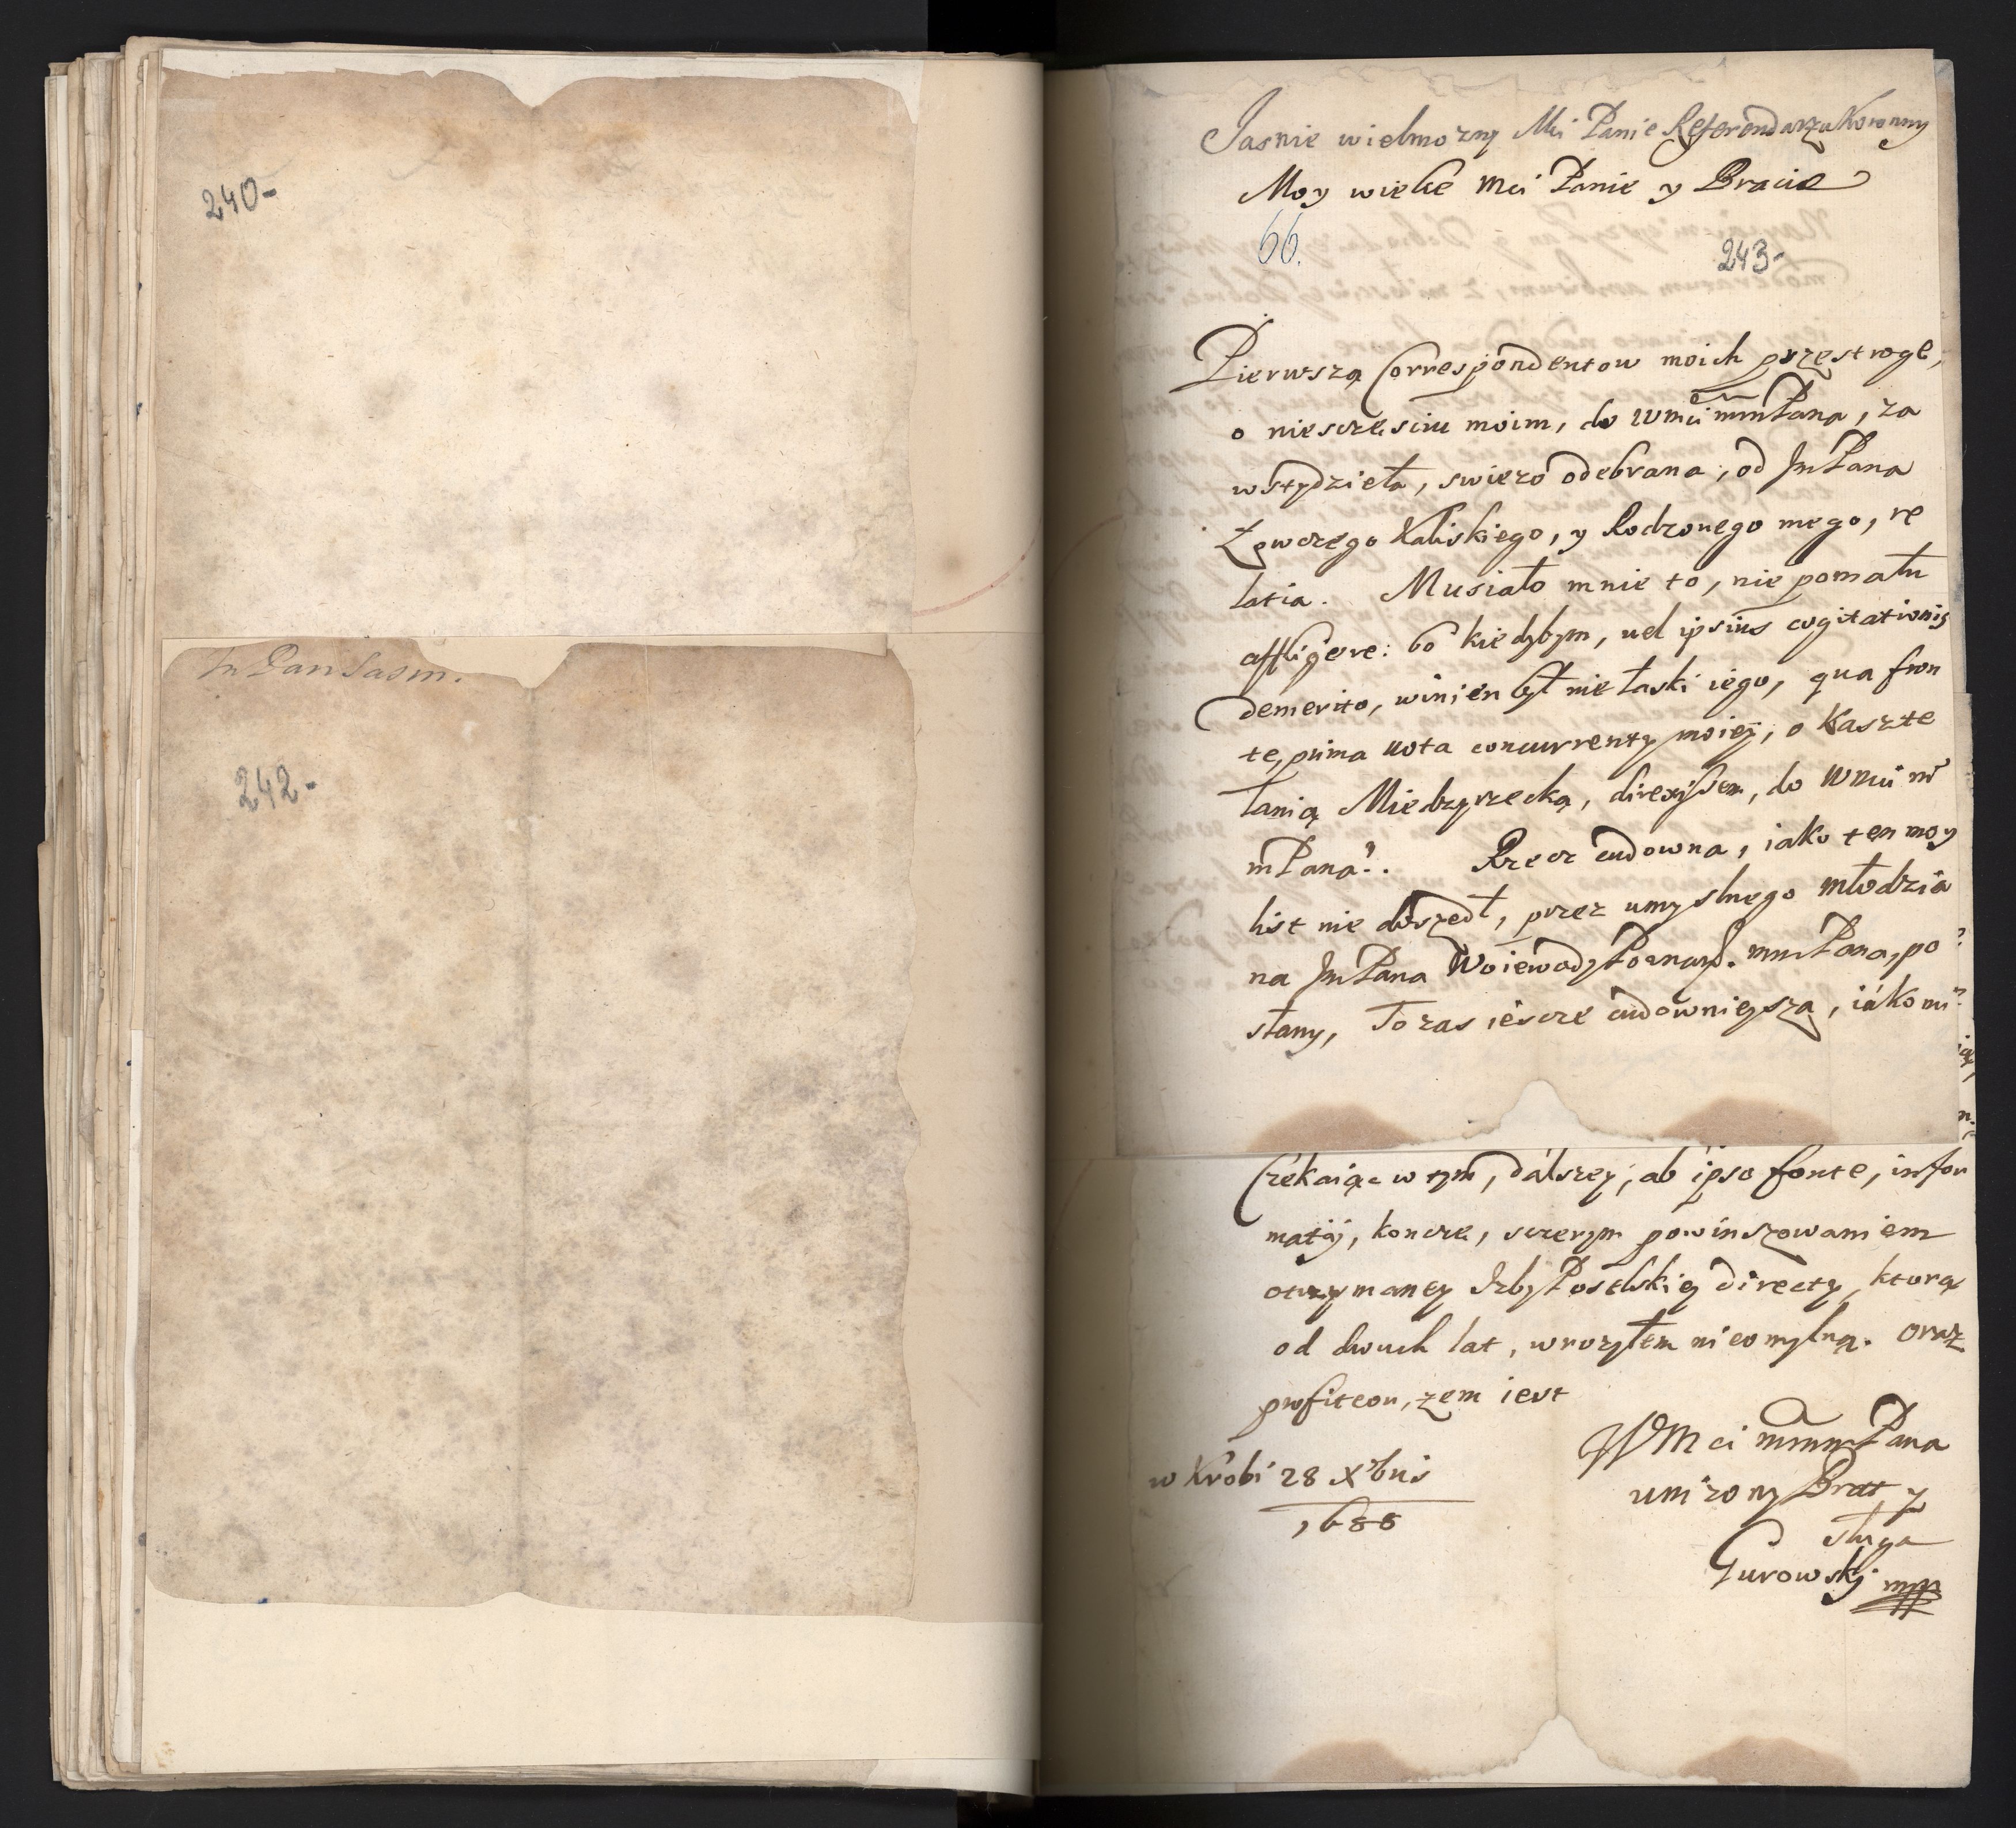 240-
Jn Pan Sasm.
242-
Jasnie wielmozny Mci Panie Referendarzu Koronny
Moy wielce Mci Panie y Bracie
66.
243-
Pierwszą Correspondentow moich przestrogę,
o niesczęsciu moim, do WMci mmPana, za
wstydzieła, swiezo odebrana, od JmPana
Łowczego Kaliskiego, y Rodzonego mego, re
latia. Musiało mnie to, nie pomału
affligere: bo kiedybym, vel ipsius cogitationis
demerito, winien był nie łaski iego, qua fron
te, prima vota concurrenty moiey, o Kaszte
lanią Miedzyrzecką, direxissem, do WMci m
mPana?. Rzecz cudowna, iako ten moy
list nie doszedł, przez umyslnego młodzia
na JmPana Woiewody Poznans. mmPana, po
słany, To zas iescze cudownieysza, iáko mi
Czekaiąc w tym, dálszey, ab ipso fonte, infor
matij, koncze, sczerym powinszowaniem
otrzymaney Izby Poselskiey directy, ktorą
od dwuch lat, wrozyłem nieomylną. oraz
profiteor, zem iest
WMci mmmPana
unizony Brat y
sługa
Gurowskj mpp
w Krobi 28 Xbris
1688